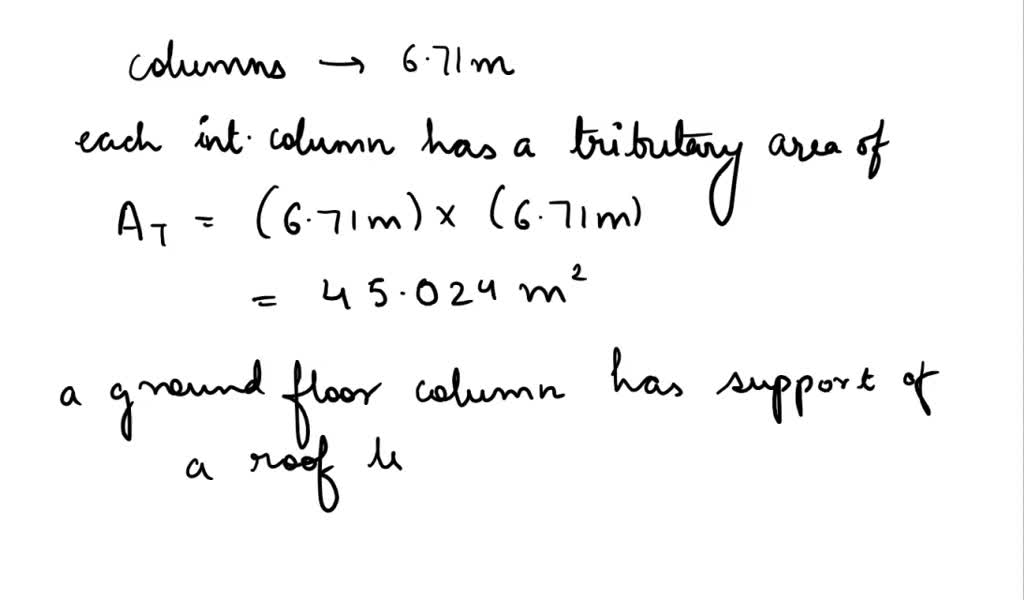 columns → 6.71m
each int. column has a tributary area of
A_T = (6.71m) × (6.71m)
= 45.024 m²
a ground floor column has support of
a roof